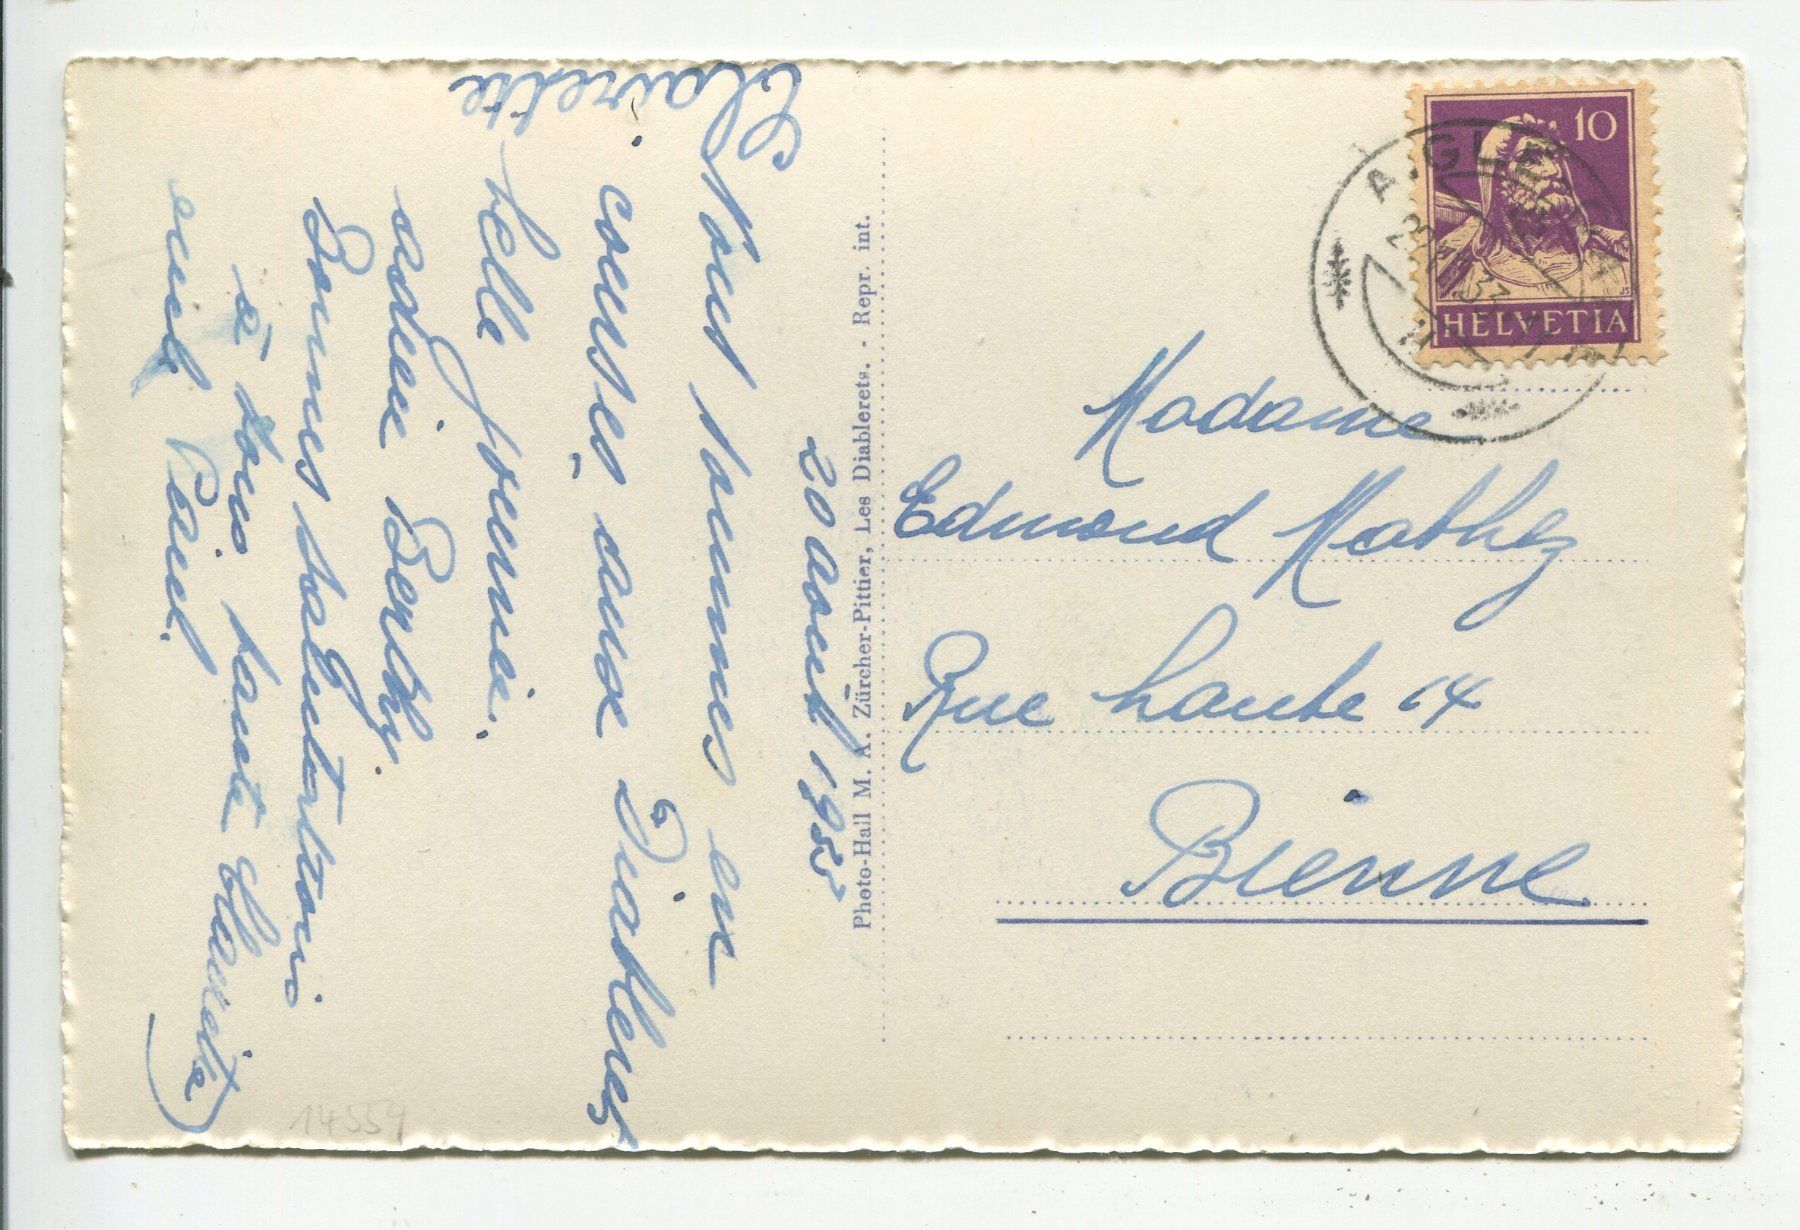 20 août 1933
Nous sommes en
courses aux Diablerets
belle journée.
adieu Berthy.
Bonnes salutations
à tous tante Clairette
oncle Paul
Clairette
Photo-Hall M. A. Zürcher-Pittier, Les Diablerets. - Repr. int.
10
HELVETIA
AIGLE
Madame
Edmond Mathez
Rue haute 14
Bienne
14554